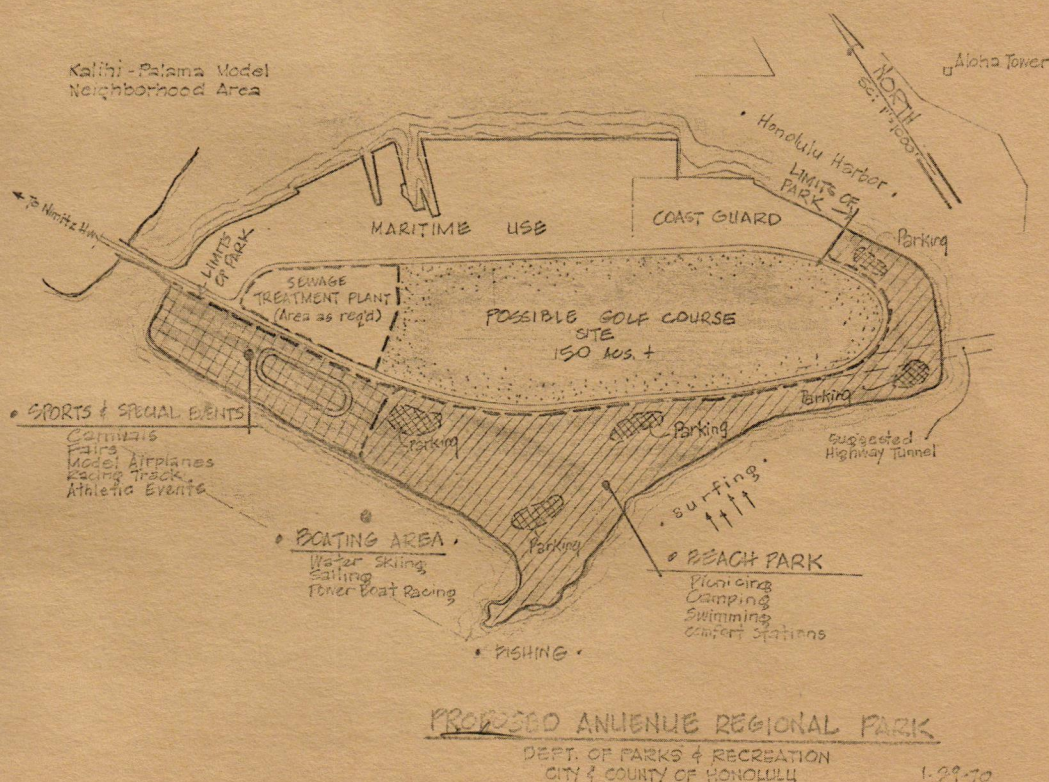 Kalihi-Palama Model
Neighborhood Area
Aloha Tower
NORTH
• Honolulu Harbor •
LIMITS OF
PARK
To Nimitz Hwy.
MARITIME USE
COAST GUARD
Parking
LIMITS
OF PARK
SEWAGE
TREATMENT PLANT
(Area as req'd)
POSSIBLE GOLF COURSE
SITE
150 ACS. +
Parking
Parking
Parking
Suggested
Highway Tunnel
• SPORTS & SPECIAL EVENTS
Carnivals
Fairs
Model Airplanes
Racing Track
Athletic Events
• surfing •
• BOATING AREA •
Water Skiing
Sailing
Power Boat Racing
Parking
• BEACH PARK
Picnicing
Camping
Swimming
Comfort Stations
• FISHING •
PROPOSED ANUENUE REGIONAL PARK
DEPT. OF PARKS & RECREATION
CITY & COUNTY OF HONOLULU
1-29-70